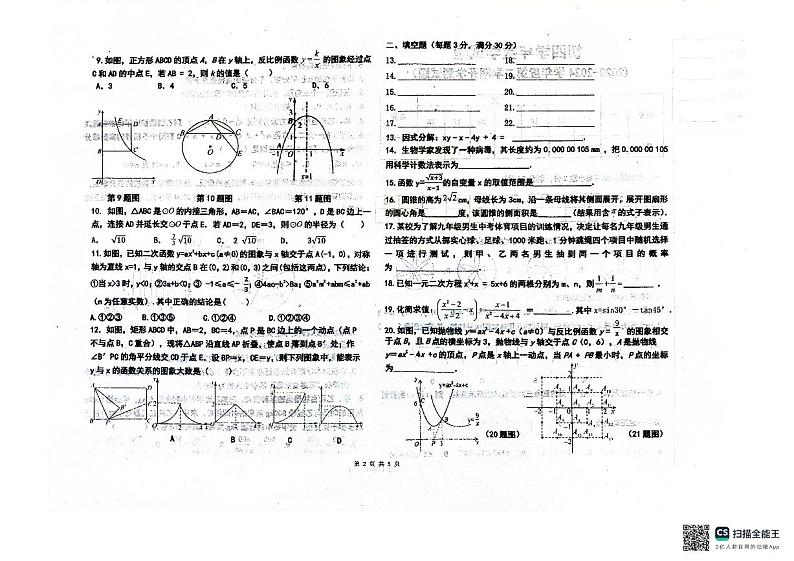 9.如图，正方形ABCD的顶点A，B在y轴上，反比例函数 y=k/x 的图象经过点
C和AD的中点E，若AB = 2，则k的值是（　　）
A、3　B、4　C、5　D、6
第9题图　第10题图　第11题图
10. 如图，△ABC是⊙O的内接三角形，AB=AC，∠BAC=120°，D是BC边上一
点，连接AD并延长交⊙O于点E．若AD=2，DE=3，则⊙O的半径为（　　）
A. √10　B. 2/3√10　C. 2√10　D. 3√10
11.如图，已知二次函数y=ax²+bx+c(a≠0)的图象与x轴交于点A(-1，0)，对称
轴为直线x=1，与y轴的交点B在(0，2)和(0，3)之间(包括这两点)，下列结论：
①当x>3时，y<0；②3a+b<0；③ -1≤a≤-2/3；④4ac-b²>8a；⑤a²m²+abm≤a²+ab
(m为任意实数).其中正确的结论是（　　）
A.①②③　B.①②③⑤　C.②③⑤　D.①②③④
12. 如图，矩形ABCD中，AB=2，BC=4，点P是BC边上的一个动点（点P
不与点B，C重合），现将△ABP沿直线AP折叠，使点B落到点B′处；作
∠B′PC的角平分线交CD于点E．设BP=x，CE=y，则下列图象中，能表示
y与x的函数关系的图象大致是（　　）
A　B　C　D
二、填空题（每题3分，满分30分）
13.　18.
14.　19.
15.　20.
16.　21.
17.　22.
13. 因式分解：xy－x－4y + 4 =
14. 生物学家发现了一种病毒，其长度约为0.000 00105 mm，把0.000 00105
用科学计数法表示为
15. 函数y=√(x+3)/(x-1)的自变量x的取值范围是
16. 圆锥的高为2√2cm，母线长为3cm，沿一条母线将其侧面展开；展开图扇形
的圆心角是　度，该圆锥的侧面积是　（结果用含π的式子表示）．
17. 某校为了解九年级男生中考体育项目的训练情况，决定让每名九年级男生通
过抽签的方式从掷实心球、足球、1000米跑、1分钟跳绳四个项目中随机选择
一项进行测试，则甲、乙两名男生抽到同一个项目的概率
为
18. 已知一元二次方程 x²+x = 5x+6的两根分别为m、n，则1/m+1/n=
20. 如图，已知抛物线 y=ax²－4x+c（a≠0）与反比例函数 y = 9/x 的图象相交
于点B，且B点的横坐标为3，抛物线与y轴交于点C（0，6），A是抛物线
y=ax²－4x +c的顶点，P点是x轴上一动点，当PA + PB最小时，P点的坐标
为
y=ax²-4x+c
y=9/x
（20题图）　（21题图）
第 2 页 共 3 页
扫描全能王
3亿人都在用的扫描App